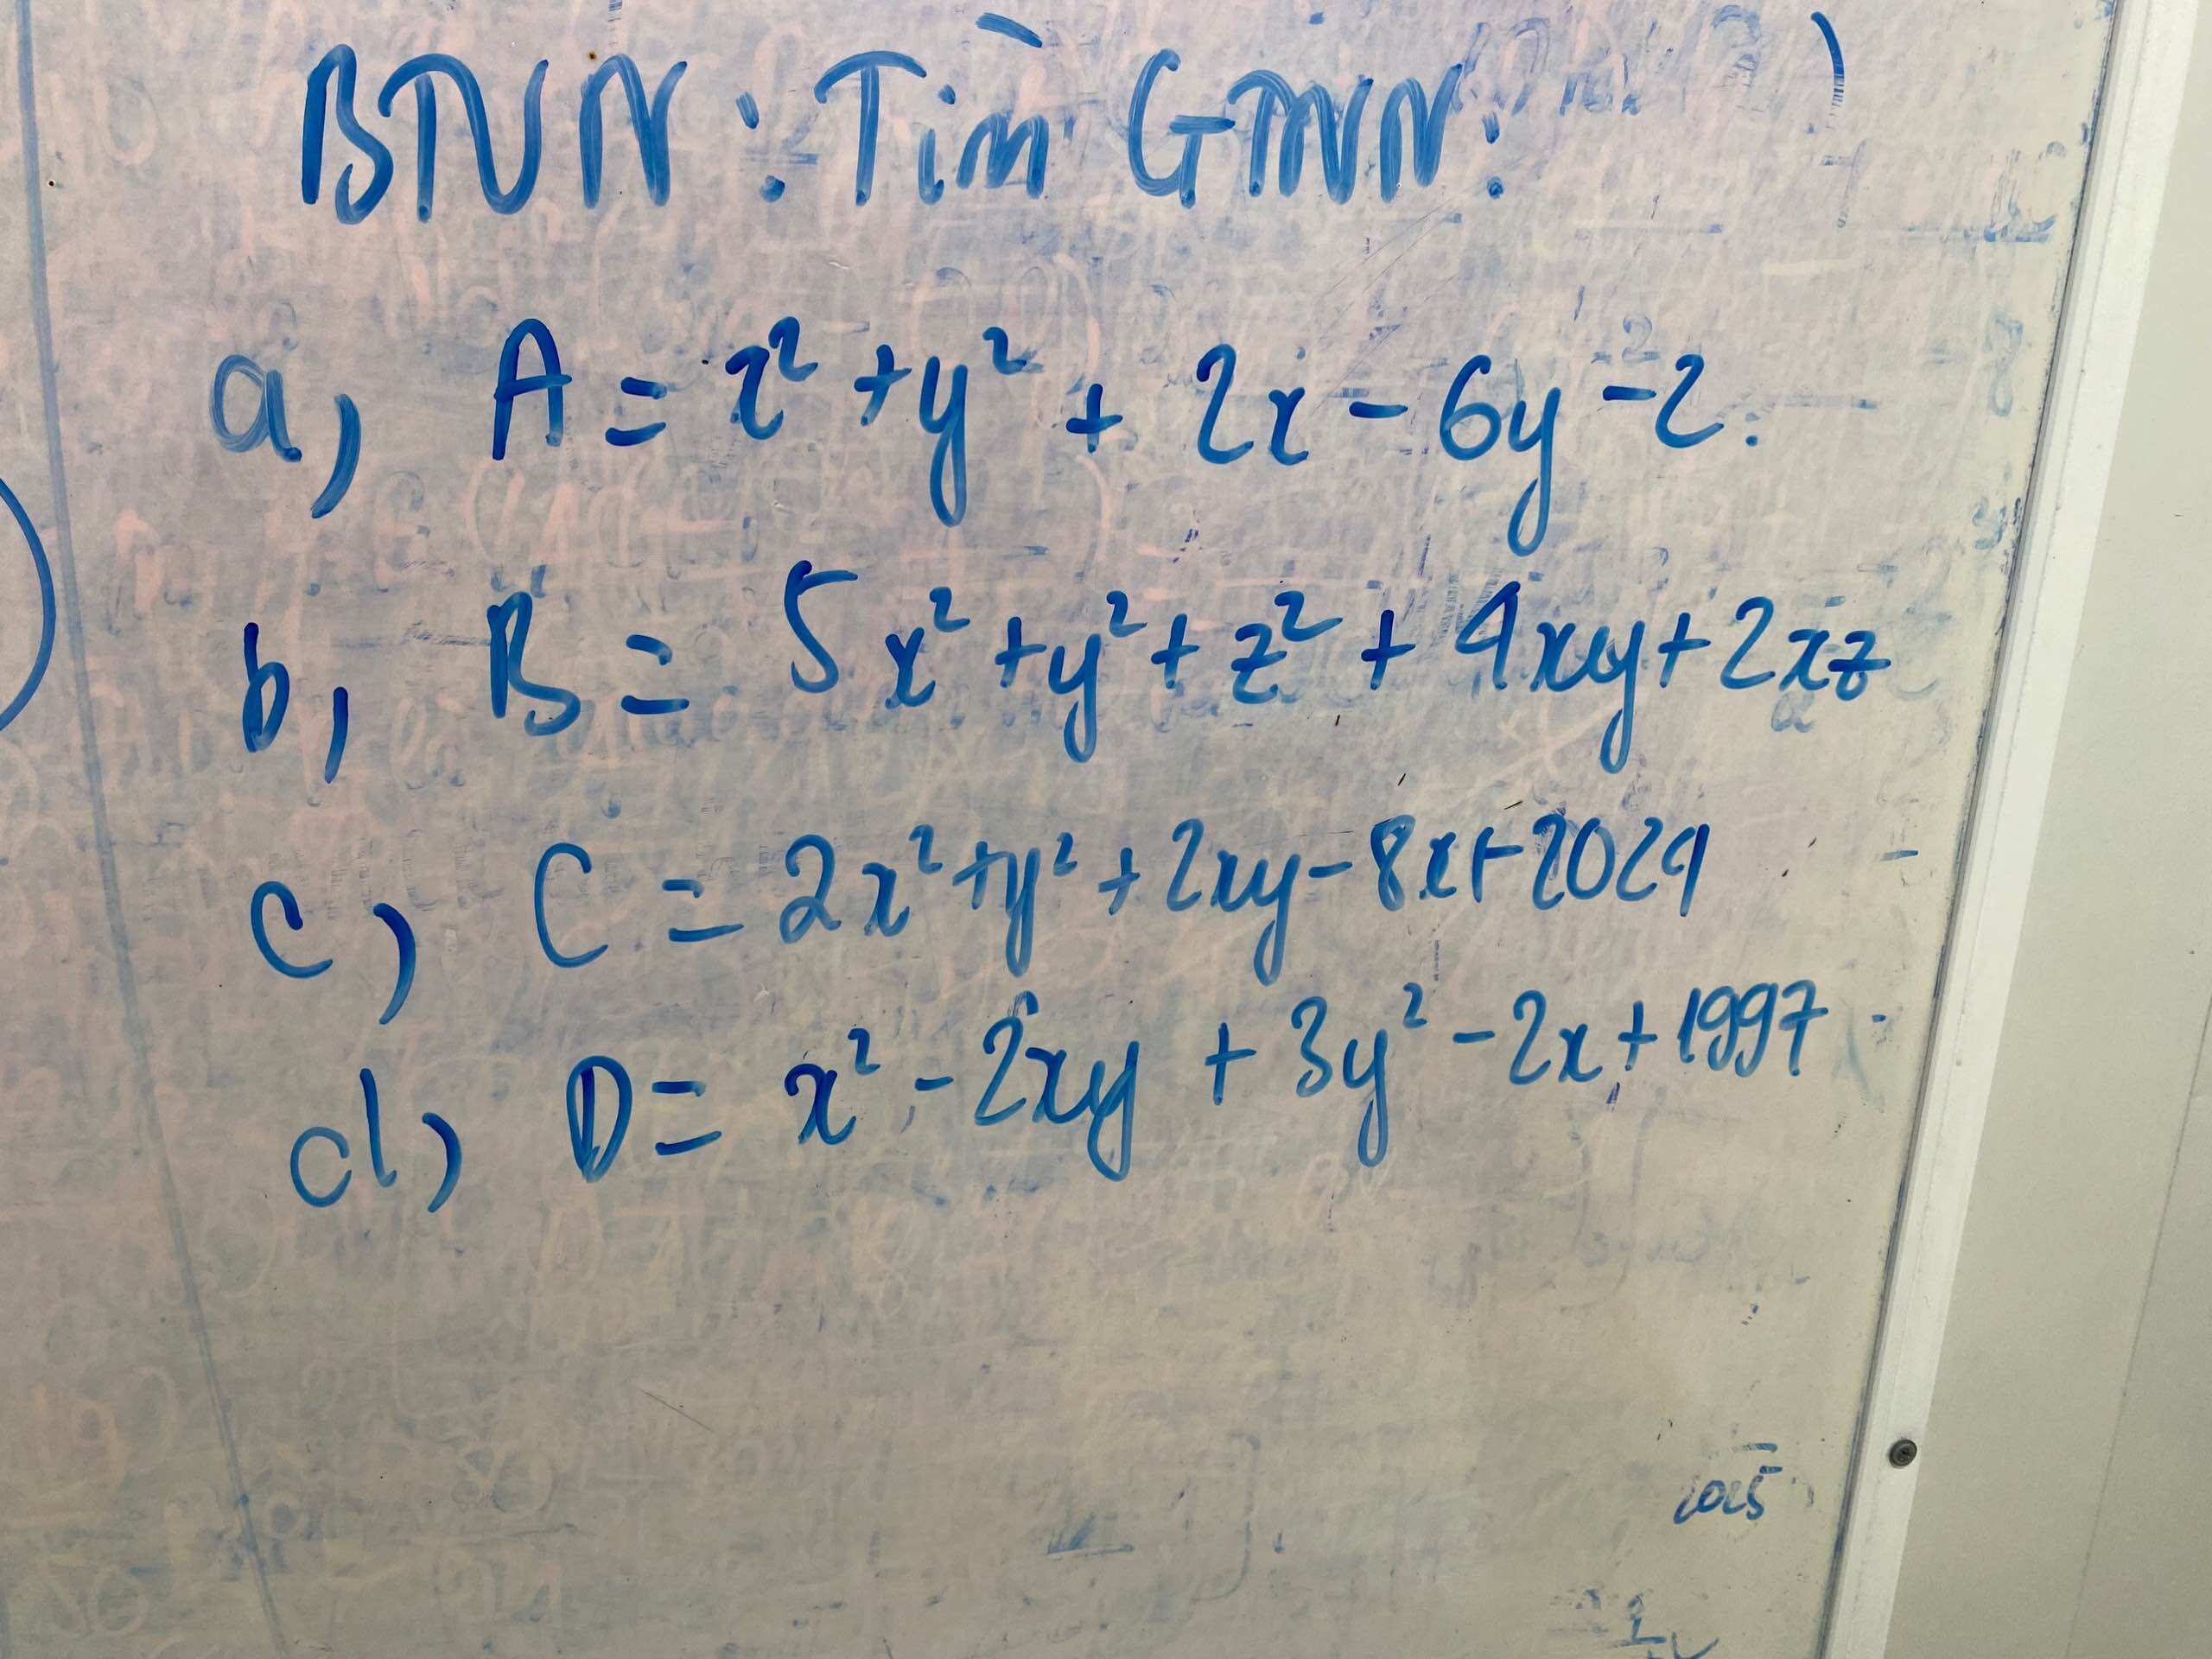 BTVN : Tìm GTNN:
a, A = x² + y² + 2x - 6y - 2.
b, B = 5x² + y² + z² + 4xy + 2xz
c) C = 2x² + y² + 2xy - 8x + 2024
d) D = x² - 2xy + 3y² - 2x + 1997
2025